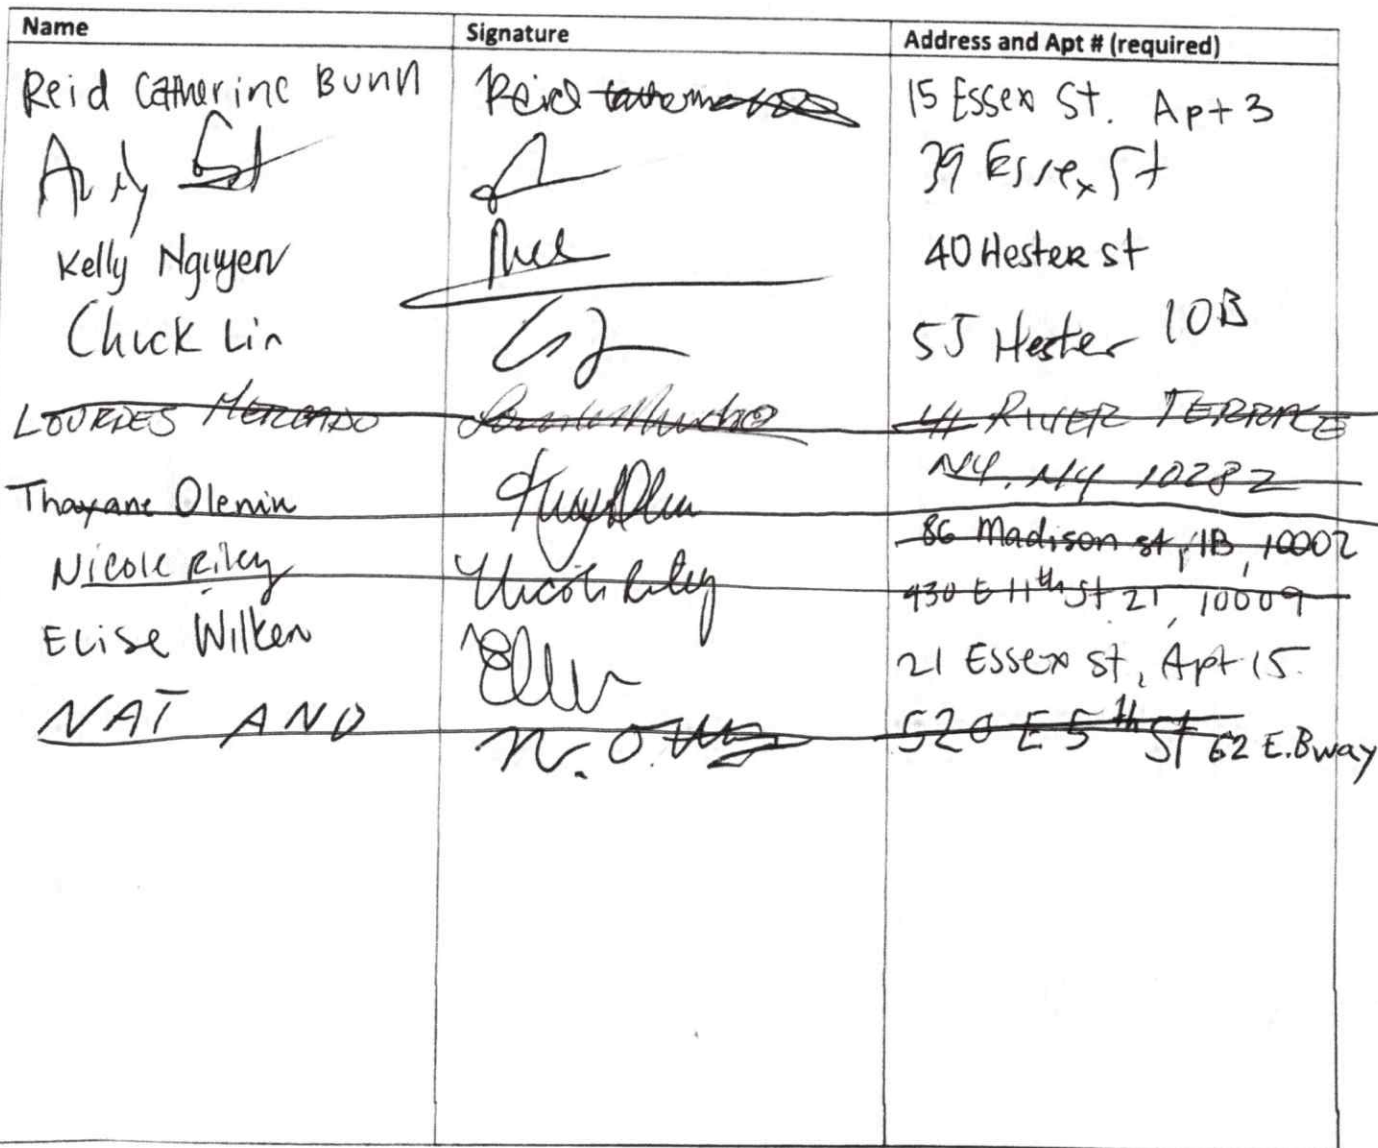 Name Signature Address and Apt # (required)
Reid Catherine Bunn Reid Catherine 15 Essex St. Apt 3
Andy 39 Essex St
Kelly Nguyen 40 Hester St
Chuck Lin 55 Hester 10B
LOURDES MERCADO RIVER TERRACE
NY. NY 10282
Thayane Olenin 86 Madison st, 1B, 10002
Nicole Riley Nicole Riley 930 E 11th St 21, 10009
Elise Wilken 21 Essex St, Apt 15.
NAT AND N. O. 520 E 5th St 62 E.Bway